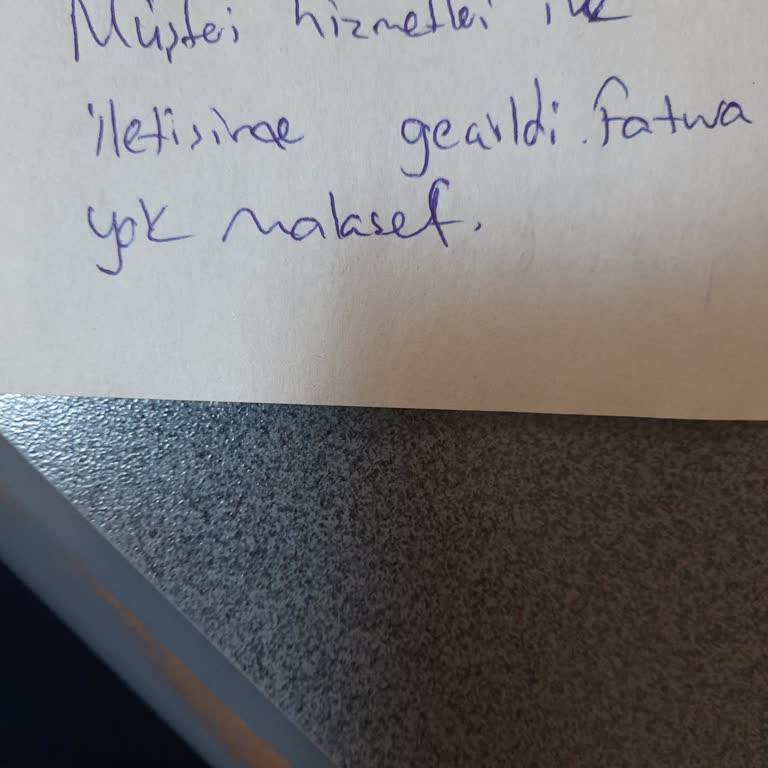 Müşteri hizmetleri ile
iletisinde geaildi. Fatura
yok malasef.